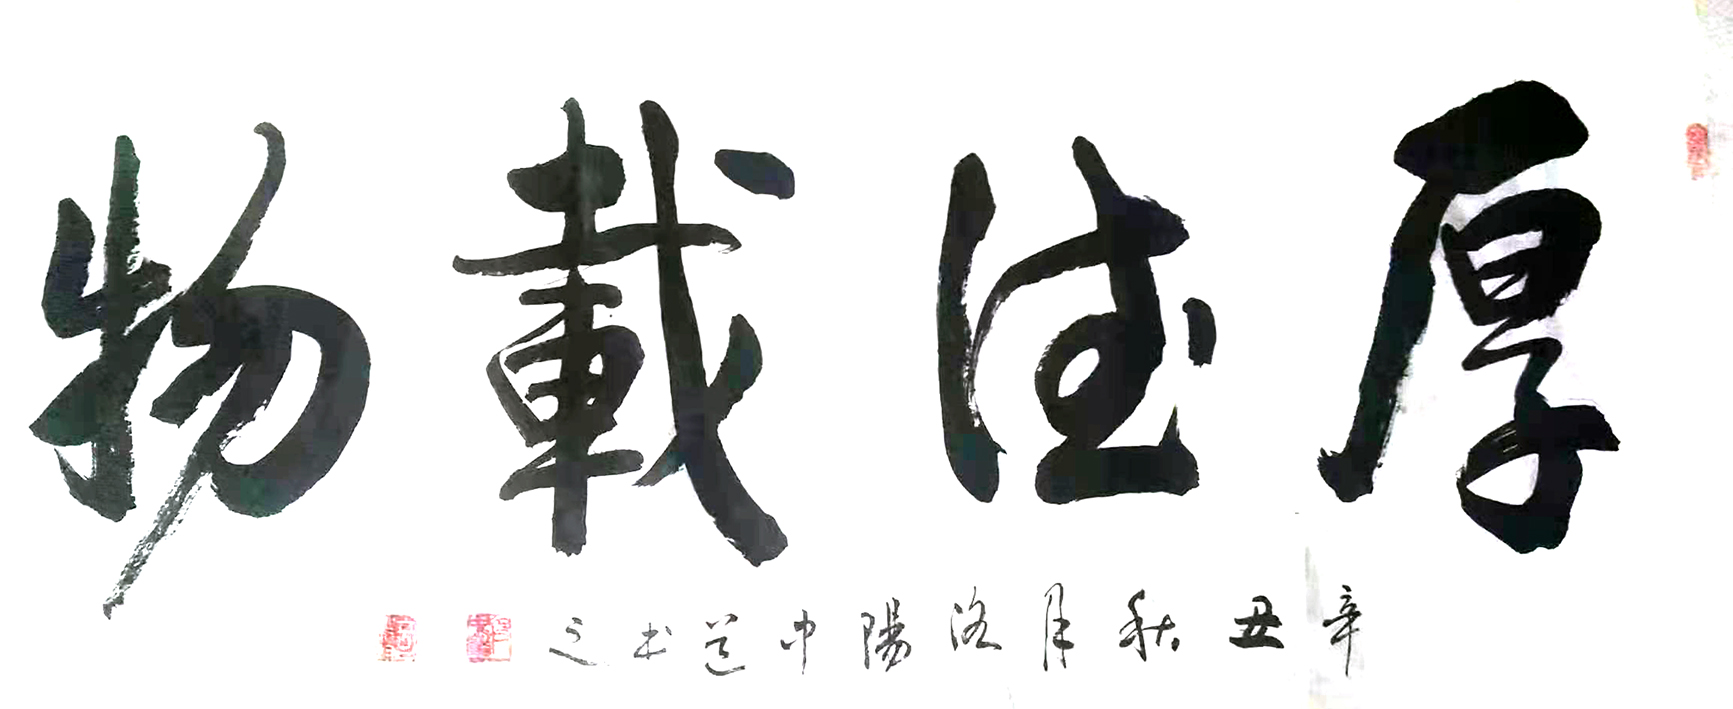 厚德載物
辛丑秋月洛陽中道书之